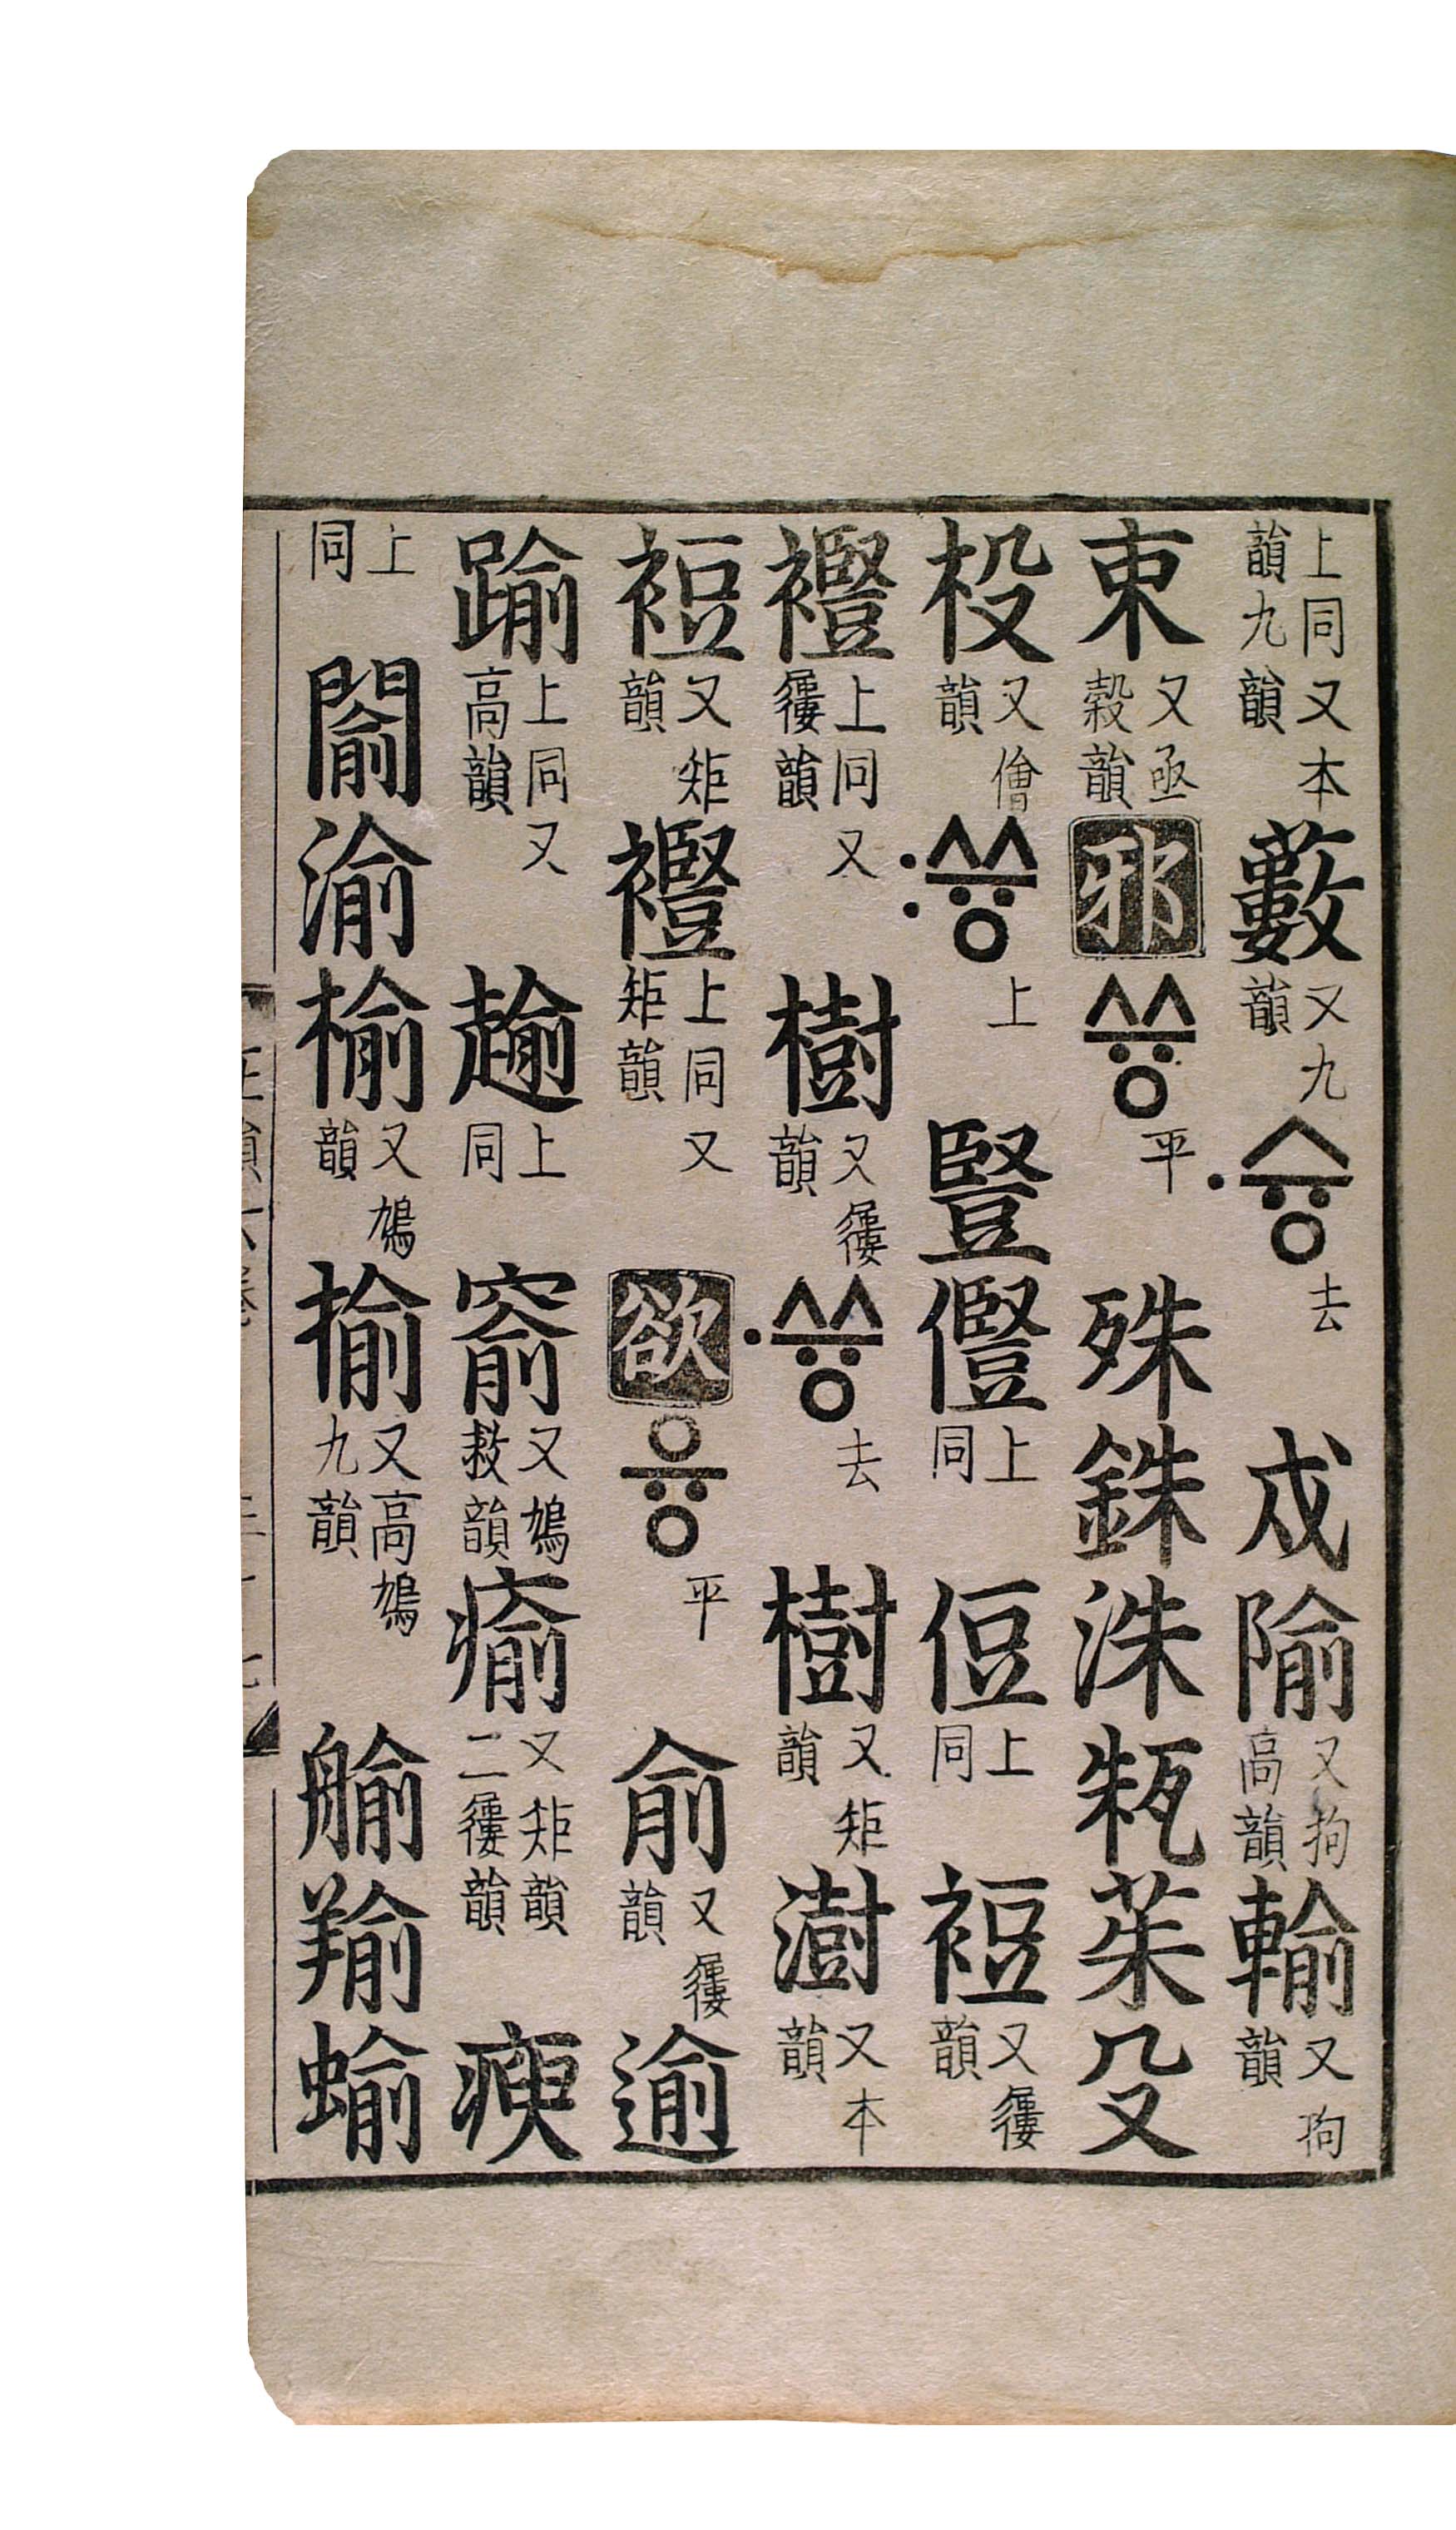 上同又本韻九韻 藪 又九韻 ·슝 去 戍 隃 又拘高韻 輸 又拘韻
束 又亟穀韻 邪 쓩 平 殊 銖 洙 茱 殳
杸 又儈韻 :쓩 上 豎 上同 侸 上同 裋 又屨韻
上同又屨韻 樹 又屨韻 ·쓩 去 樹 又矩韻 澍 又本韻
裋 又矩韻 上同又矩韻 欲 융 平 俞 又屨韻 逾
踰 上同又高韻 上同 窬 又鳩救韻 瘉 又矩韻二屨韻 瘐
上同 渝 榆 又鳩韻 揄 又高鳩九韻 羭 蝓